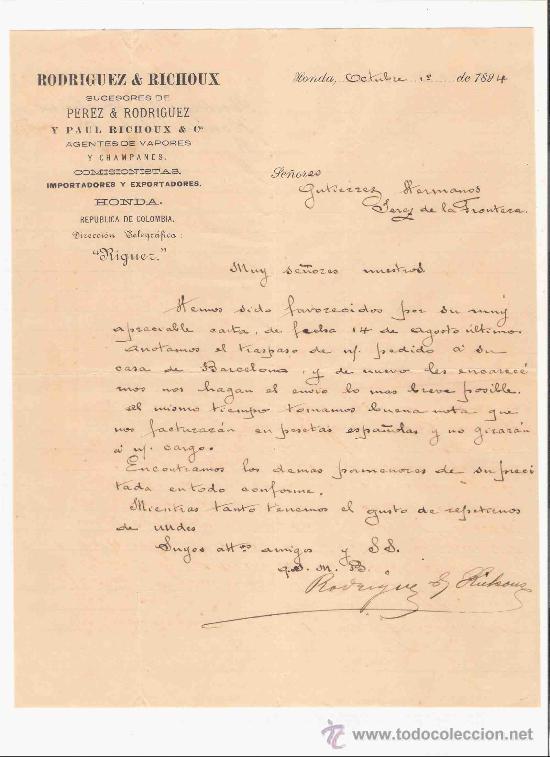 RODRIGUEZ & RICHOUX
SUCESORES DE
PEREZ & RODRIGUEZ
Y PAUL RICHOUX & Cª
AGENTES DE VAPORES
Y CHAMPANES.
COMISIONISTAS,
IMPORTADORES Y EXPORTADORES.
HONDA.
REPUBLICA DE COLOMBIA.
Dirección Telegráfica:
"Riguez."
Honda, Octubre 1º de 1894
Señores
Gutierrez Hermanos
Jerez de la Frontera.
Muy señores nuestros
Hemos sido favorecidos por su muy
apreciable carta, de fecha 14 de agosto último.
Anotamos el traspaso de n/. pedido á su
casa de Barcelona, y de nuevo les encarece-
mos nos hagan el envio lo mas breve posible.
Al mismo tiempo tomamos buena nota que
nos facturarán en pesetas españolas y no girarán
á n/. cargo.
Encontramos los demas pormenores de su preci-
tada en todo conforme.
Mientras tanto tenemos el gusto de repetirnos
de uudes
Suyos attos amigos y SS.
q. S. M. B.
Rodriguez & Richoux
www.todocoleccion.net